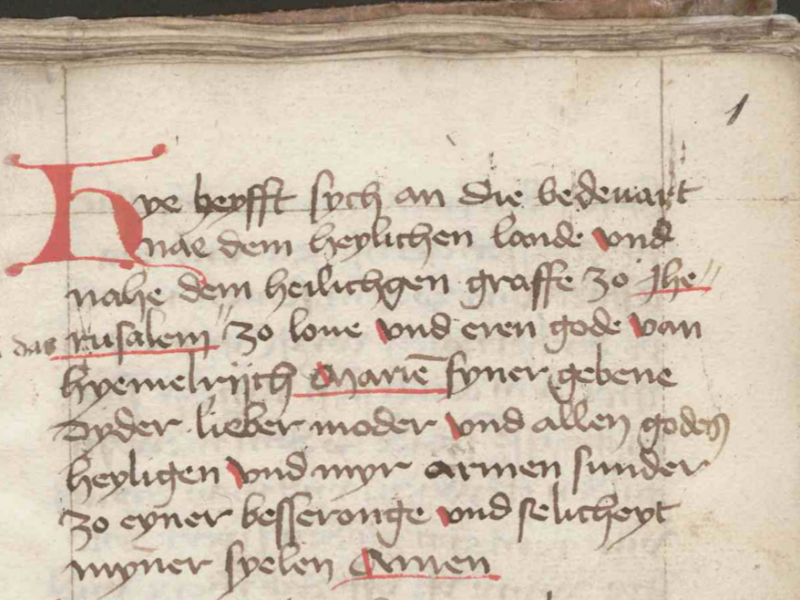 1
Hye heyfft sych an die bedeuart
nae dem heylichen lande vnd
nahe dem heilichgen graffe zo Jhe〃
rusalem〃 zo loue vnd eren gode van
hyemelrijch Mariē syner gebene
dyder lieber moder vnd allen godes
heyligen vnd myr armen sunder
zo eyner besseronge vnd selicheyt
myner syelen Amen